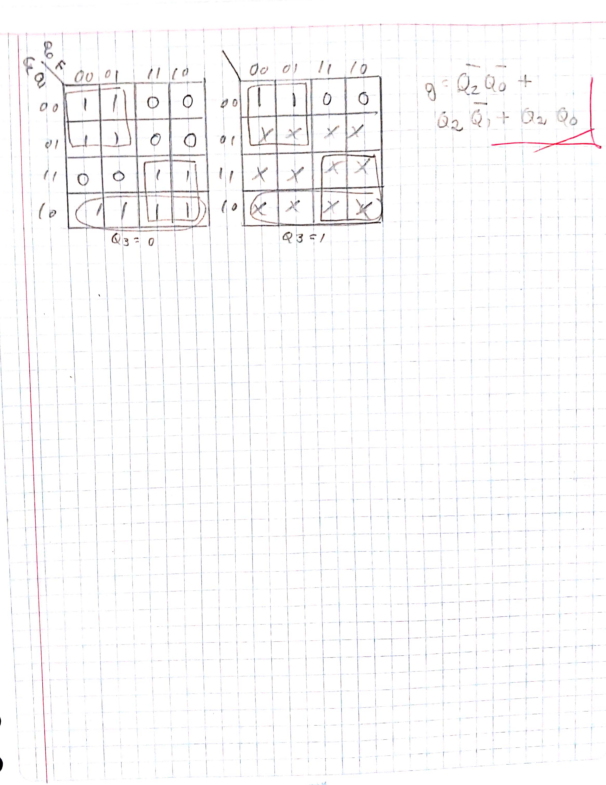 00 01 11 10
00 1 1 0 0
01 1 1 0 0
11 0 0 1 1
10 1 1 1 1
Q3 = 0
00 01 11 10
00 1 1 0 0
01 X X X X
11 X X X X
10 X X X X
Q3 = 1
g = Q̅₂ Q̅₀ +
Q₂ Q̅₁ + Q₂ Q₀